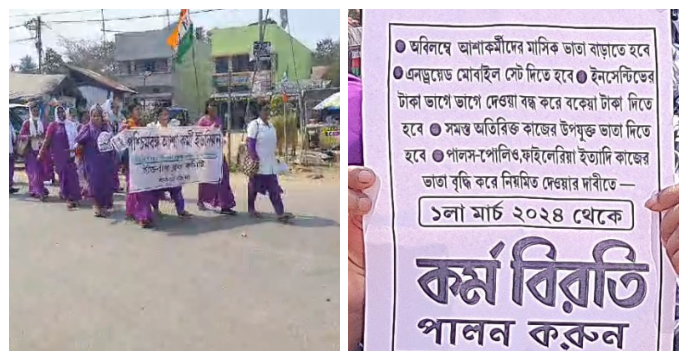 পশ্চিমবঙ্গ আশা কর্মী ইউনিয়ন
অবিলম্বে আশাকর্মীদের মাসিক ভাতা বাড়াতে হবে
এনড্রয়েড মোবাইল সেট দিতে হবে ইনসেন্টিভের
টাকা ভাগে ভাগে দেওয়া বন্ধ করে বকেয়া টাকা দিতে
হবে সমস্ত অতিরিক্ত কাজের উপযুক্ত ভাতা দিতে
হবে পালস-পোলিও,ফাইলেরিয়া ইত্যাদি কাজের
ভাতা বৃদ্ধি করে নিয়মিত দেওয়ার দাবীতে —
১লা মার্চ ২০২৪ থেকে
কর্ম বিরতি
পালন করুন